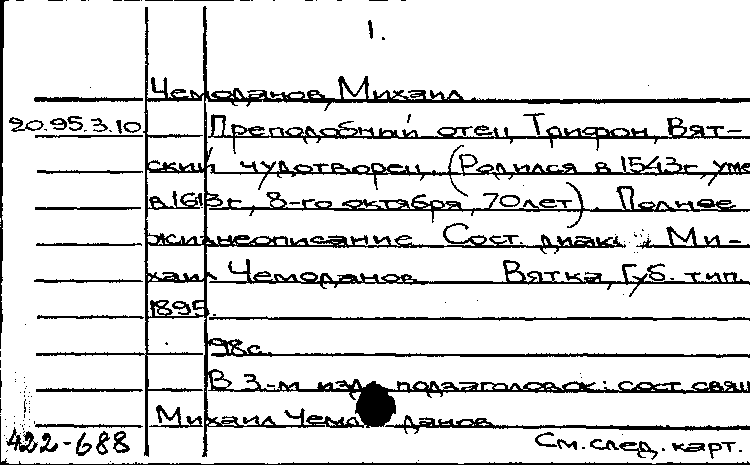 1.
Чемоданов, Михаил.
20.95.3.10. Преподобный отец Трифон, Вят-
ский чудотворец. (Родился в 1543г, уме
в 1613г, 8-го октября, 70 лет). Полнее
жизнеописание. Сост. диак Ми-
хаил Чемоданов. Вятка, Губ. тип.
1895.
98с.
В 3-м изд. подзаголовок: сост. свящ
Михаил Чем данов
422-688 См. след. карт.